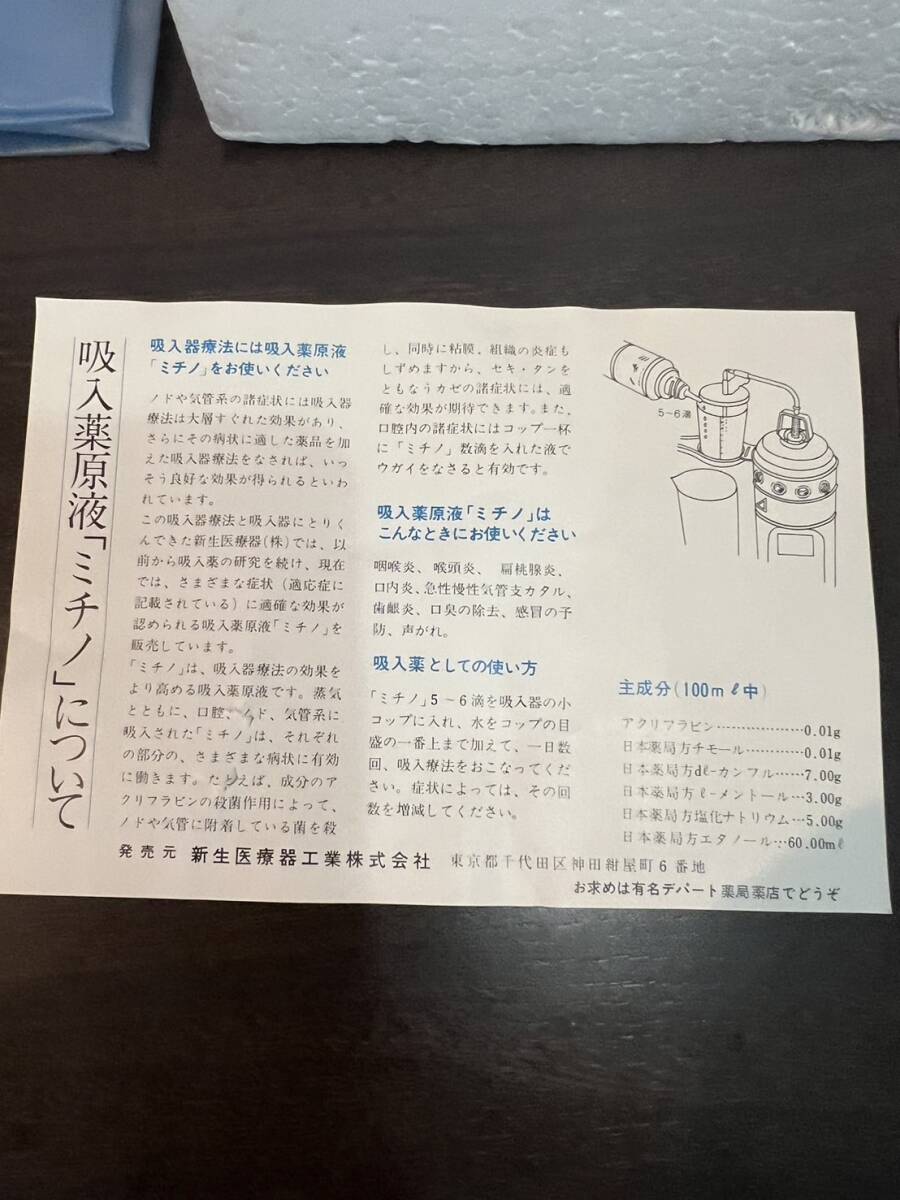 吸入薬原液「ミチノ」について
吸入器療法には吸入薬原液
「ミチノ」をお使いください
ノドや気管系の諸症状には吸入器
療法は大層すぐれた効果があり、
さらにその病状に適した薬品を加
えた吸入器療法をなされば、いっ
そう良好な効果が得られるといわ
れています。
この吸入器療法と吸入器にとりく
んできた新生医療器(株)では、以
前から吸入薬の研究を続け、現在
では、さまざまな症状（適応症に
記載されている）に適確な効果が
認められる吸入薬原液「ミチノ」を
販売しています。
「ミチノ」は、吸入器療法の効果を
より高める吸入薬原液です。蒸気
とともに、口腔、ノド、気管系に
吸入された「ミチノ」は、それぞれ
の部分の、さまざまな病状に有効
に働きます。たとえば、成分のア
クリフラビンの殺菌作用によって、
ノドや気管に附着している菌を殺
し、同時に粘膜、組織の炎症も
しずめますから、セキ・タンを
ともなうカゼの諸症状には、適
確な効果が期待できます。また、
口腔内の諸症状にはコップ一杯
に「ミチノ」数滴を入れた液で
ウガイをなさると有効です。
吸入薬原液「ミチノ」は
こんなときにお使いください
咽喉炎、喉頭炎、扁桃腺炎、
口内炎、急性慢性気管支カタル、
歯齦炎、口臭の除去、感冒の予
防、声がれ。
吸入薬としての使い方
「ミチノ」5～6滴を吸入器の小
コップに入れ、水をコップの目
盛の一番上まで加えて、一日数
回、吸入療法をおこなってくだ
さい。症状によっては、その回
数を増減してください。
5～6滴
主成分(100mℓ中)
アクリフラビン……………0.01g
日本薬局方チモール………0.01g
日本薬局方dℓ-カンフル……7.00g
日本薬局方ℓ-メントール…3.00g
日本薬局方塩化ナトリウム…5.00g
日本薬局方エタノール…60.00mℓ
発売元 新生医療器工業株式会社 東京都千代田区神田紺屋町6番地
お求めは有名デパート薬局薬店でどうぞ